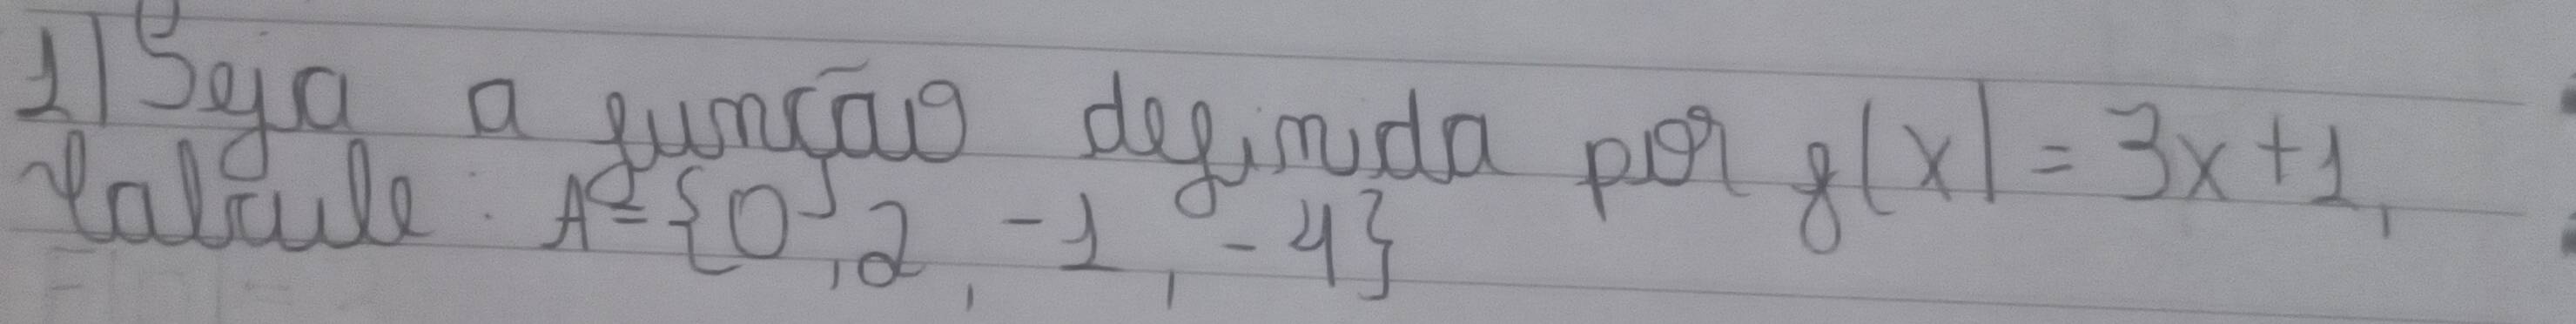 1) Seja a função definida por f(x) = 3x + 1,
Calcule: A = {0, 2, -1, -4}